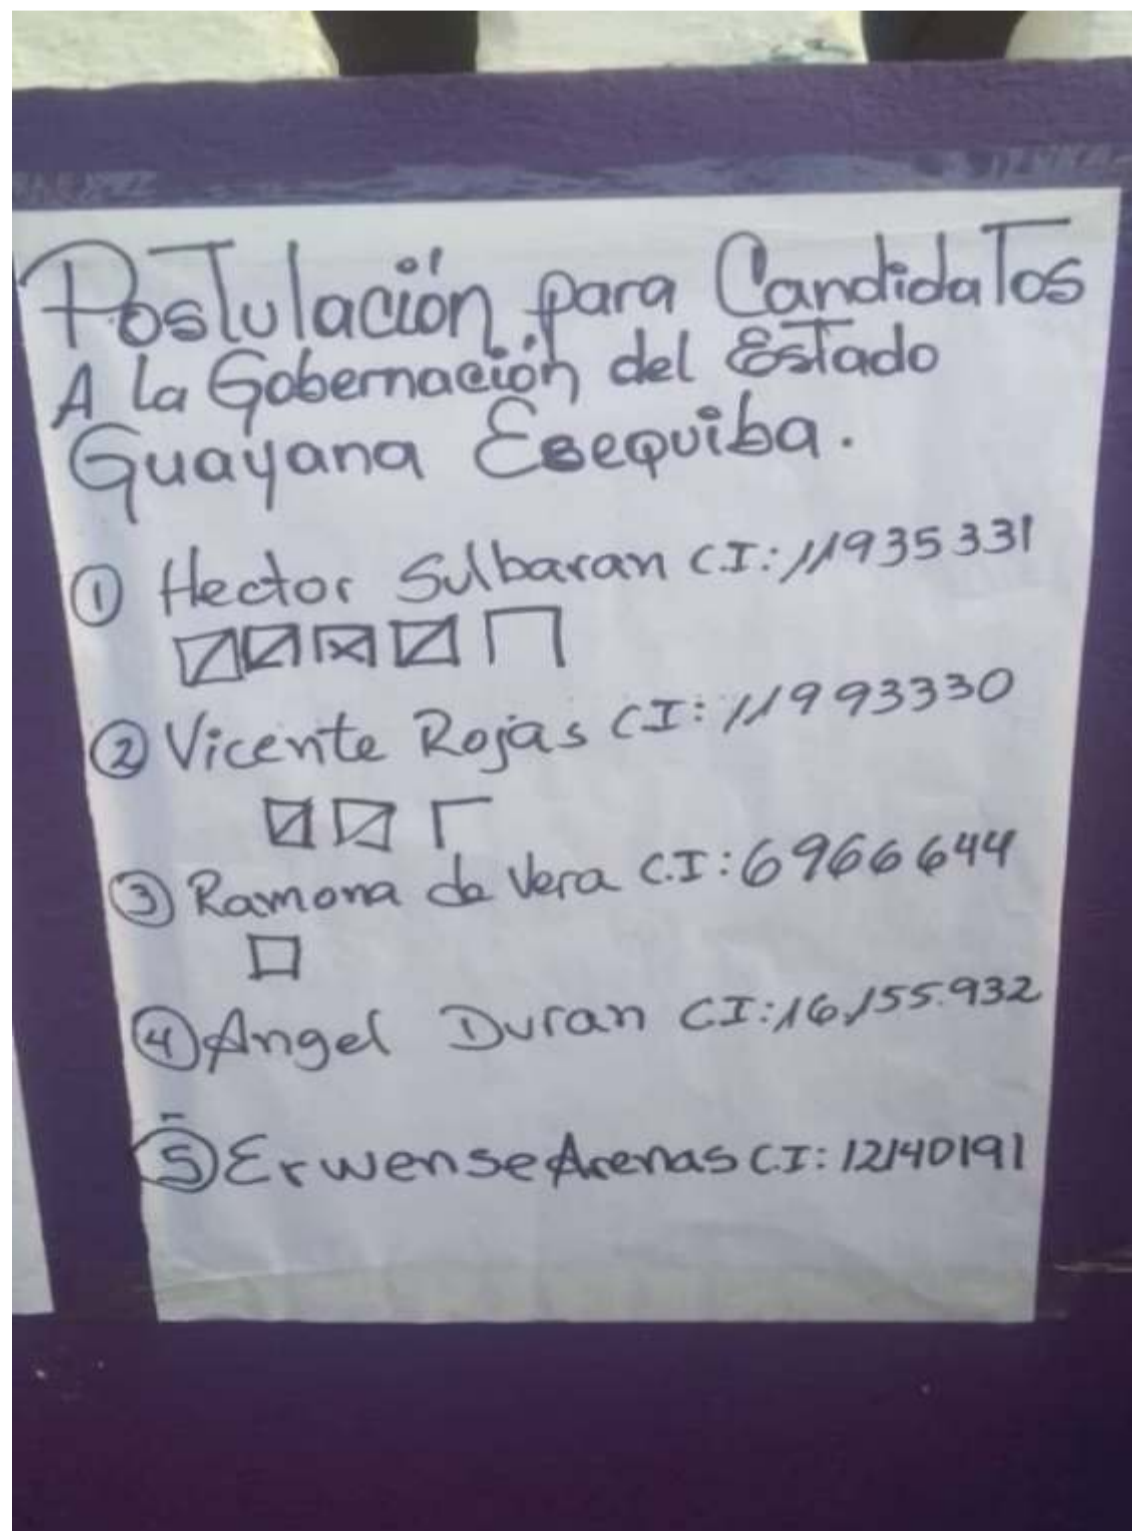 Postulación para Candidatos
A La Gobernación del Estado
Guayana Esequiba.
① Hector Sulbaran C.I: 11935331
② Vicente Rojas CI: 11993330
③ Ramona de Vera C.I: 6966644
④ Angel Duran CI: 16.155.932
⑤ Erwense Arenas C.I: 12140191